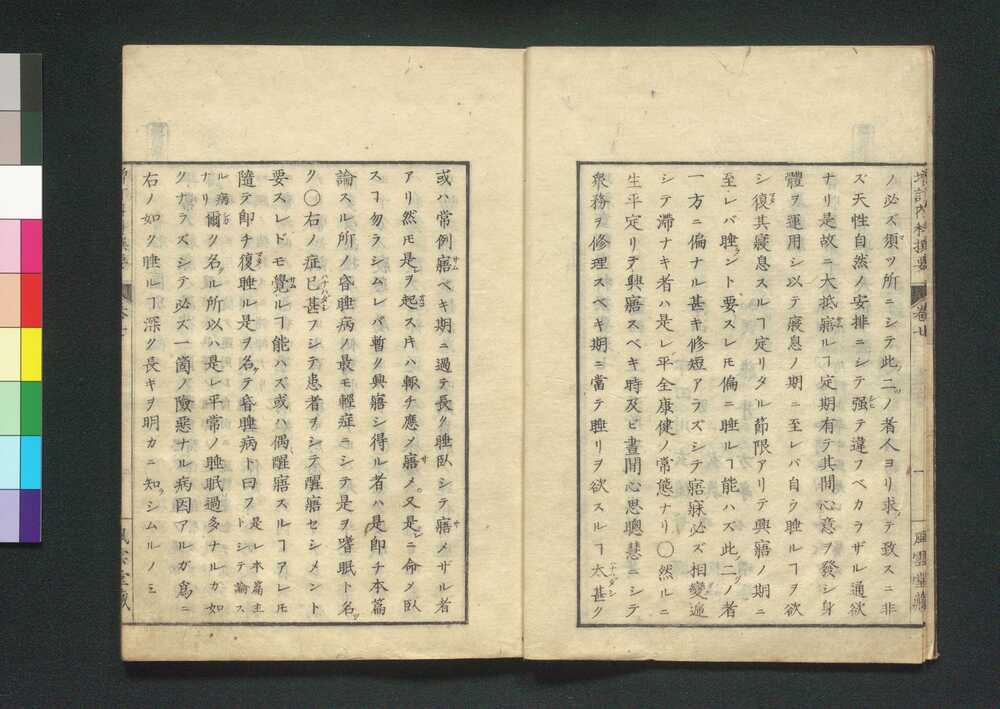 増訂内科撰要 卷七 一 風雲堂藏
ノ必ズ須ツ所ニシテ此二ノ者人ヨリ求テ致スニ非
ズ天性自然ノ安排ニシテ强テ違フベカラザル通欲
ナリ是故ニ大抵寤ルヿ定期有テ其間心意ヲ發シ身
體ヲ運用シ以テ寢息ノ期ニ至レバ自ウ睡ルヿヲ欲
シ復其寢息スルヿ定リタル節限アリテ興寤ノ期ニ
至レバ睡ラント要スレモ偏ニ睡ルヿ能ハズ此二ノ者
一方ニ偏ナル甚キ修短アラズシテ寤寐必ズ相變遞
シテ滯ナキ者ハ是レ平全康健ノ常態ナリ〇然ルニ
生平定リテ興寤スベキ時及ビ晝間心思聰慧ニシテ
衆務ヲ修理スベキ期ニ當テ睡リヲ欲スルヿ太甚ク
或ハ常例寤ベキ期ニ過テ長ク睡臥シテ寤メザル者
アリ然モ是ヲ起ス片ハ輙チ應ノ寤メ又是ニ命ノ臥
スヿ勿ラシムレバ暫ク興寤シ得ル者ハ是即チ本篇
論スル所ノ昏睡病ノ最モ輕症ニシテ是ヲ嗜眠ト名
ク〇右ノ症已甚フシテ患者ヲシテ醒寤セシメント
要スレドモ覺ルヿ能ハズ或ハ偶醒寤スルヿアレモ
隨テ即チ復睡ル是ヲ名テ昏睡病ト曰フ是レ本篇主トシテ論ス
ル病ナリ爾ク名ル所以ハ是レ平常ノ睡眠過多ナルガ如
クナラズシテ必ズ一箇ノ險惡ナル病因アルガ爲ニ
右ノ如ク睡ルヿ深ク長キヲ明カニ知ラシムルノミ